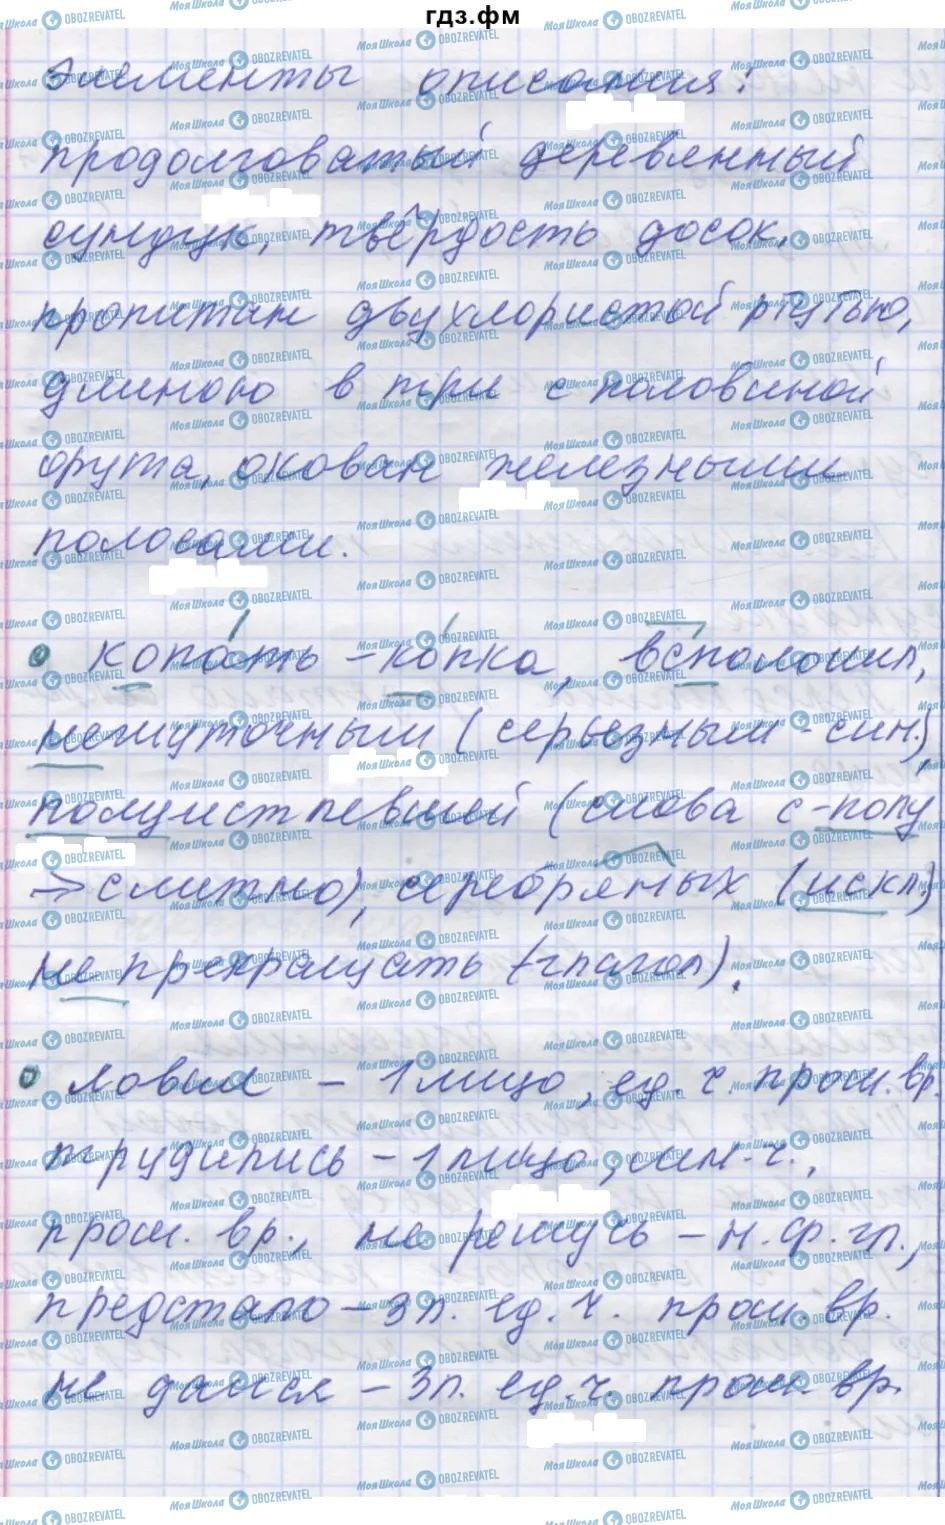 гдз.фм
Элементы описания:
продолговатый деревянный
сундук, твёрдость досок,
пропитан двухлористой ртутью,
длиною в три с половиной
фута, окован железными
полосами.
копать – копка, всполошил,
нешуточным (серьезным – син.),
полуистлевшей (слова с -полу
→ слитно), серебряных (искл.)
не прекращать (глагол).
ловил – 1 лицо, ед. ч. прош. вр.
трудились – 1 лицо, мн. ч.,
прош. вр., не решусь – н. ф. гл.,
предстало – 3 л. ед. ч. прош. вр.
не дался – 3 л. ед. ч. прош. вр.
МояШкола OBOZREVATEL